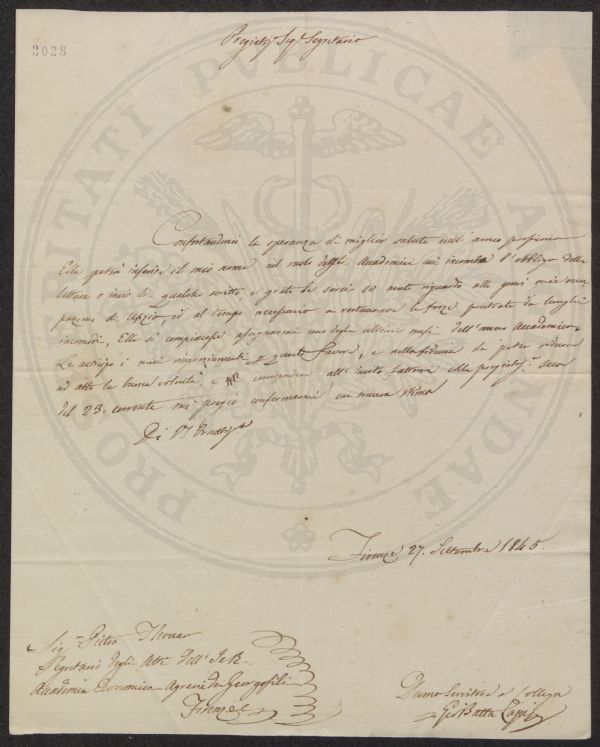 2028
Pregiat.mo Sig.r Segretario
PROSPERITATI PVBLICAE AVGENDAE
Confortandomi la speranza di miglior salute nell'anno prossimo
Ella potrà inserire il mio nome nel ruolo degli Accademici cui incomba l'obbligo della
lettura o invii di qualche scritto e grato le sarei se avuto riguardo alle gravi mie occu
pazioni di Ufizio ed al tempo necessario a restaurare le forze prostrate da lunghi
incomodi, Ella si compiacesse assegnarmi uno degli ultimi mesi dell'anno Accademico.
Le anticipo i miei ringraziamenti per questo favore, e nella fiducia di poter ridurre
ad atto la buona volontà, e corrispondere all'invito fattomi colla pregiatis.ma sua
del 23. corrente mi pregio confermarmi con sincera stima
Di VS
Firenze 27. Settembre 1845.
Sig.r Pietro Thouar
Segretario degli Atti dell'I e R.
Accademia Economico Agraria dei Georgofili
Firenze
Devmo Servitore e Collega
Gio Batta Capei